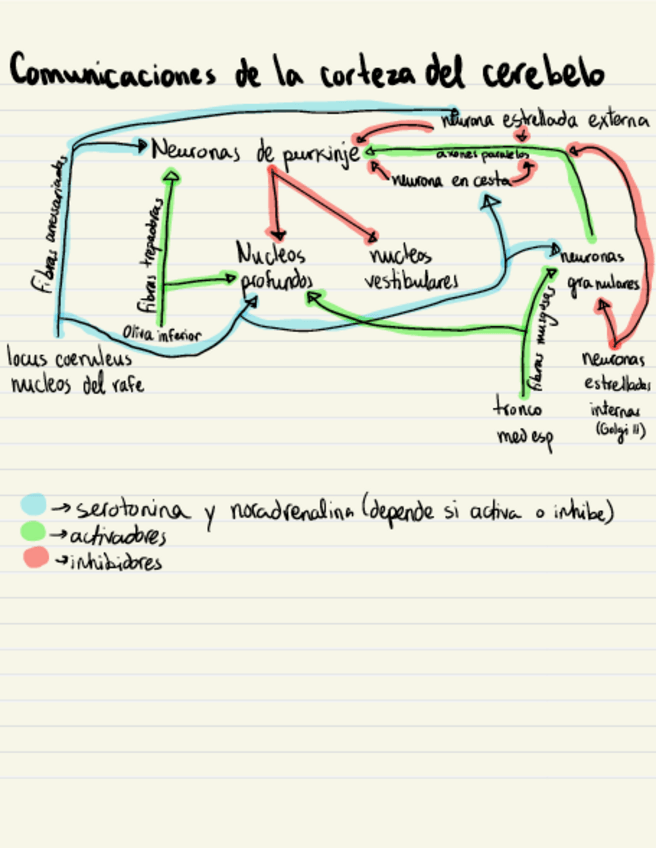 Comunicaciones de la corteza del cerebelo
neurona estrellada externa
Neuronas de purkinje
axones paralelos
neurona en cesta
fibras trepadoras
Nucleos
profundos
nucleos
vestibulares
neuronas
granulares
Oliva inferior
fibras musgosas
locus coeruleus
nucleos del rafe
neuronas
estrelladas
internas
(Golgi II)
tronco
med esp
→ serotonina y noradrenalina (depende si activa o inhibe)
→ activadores
→ inhibidores